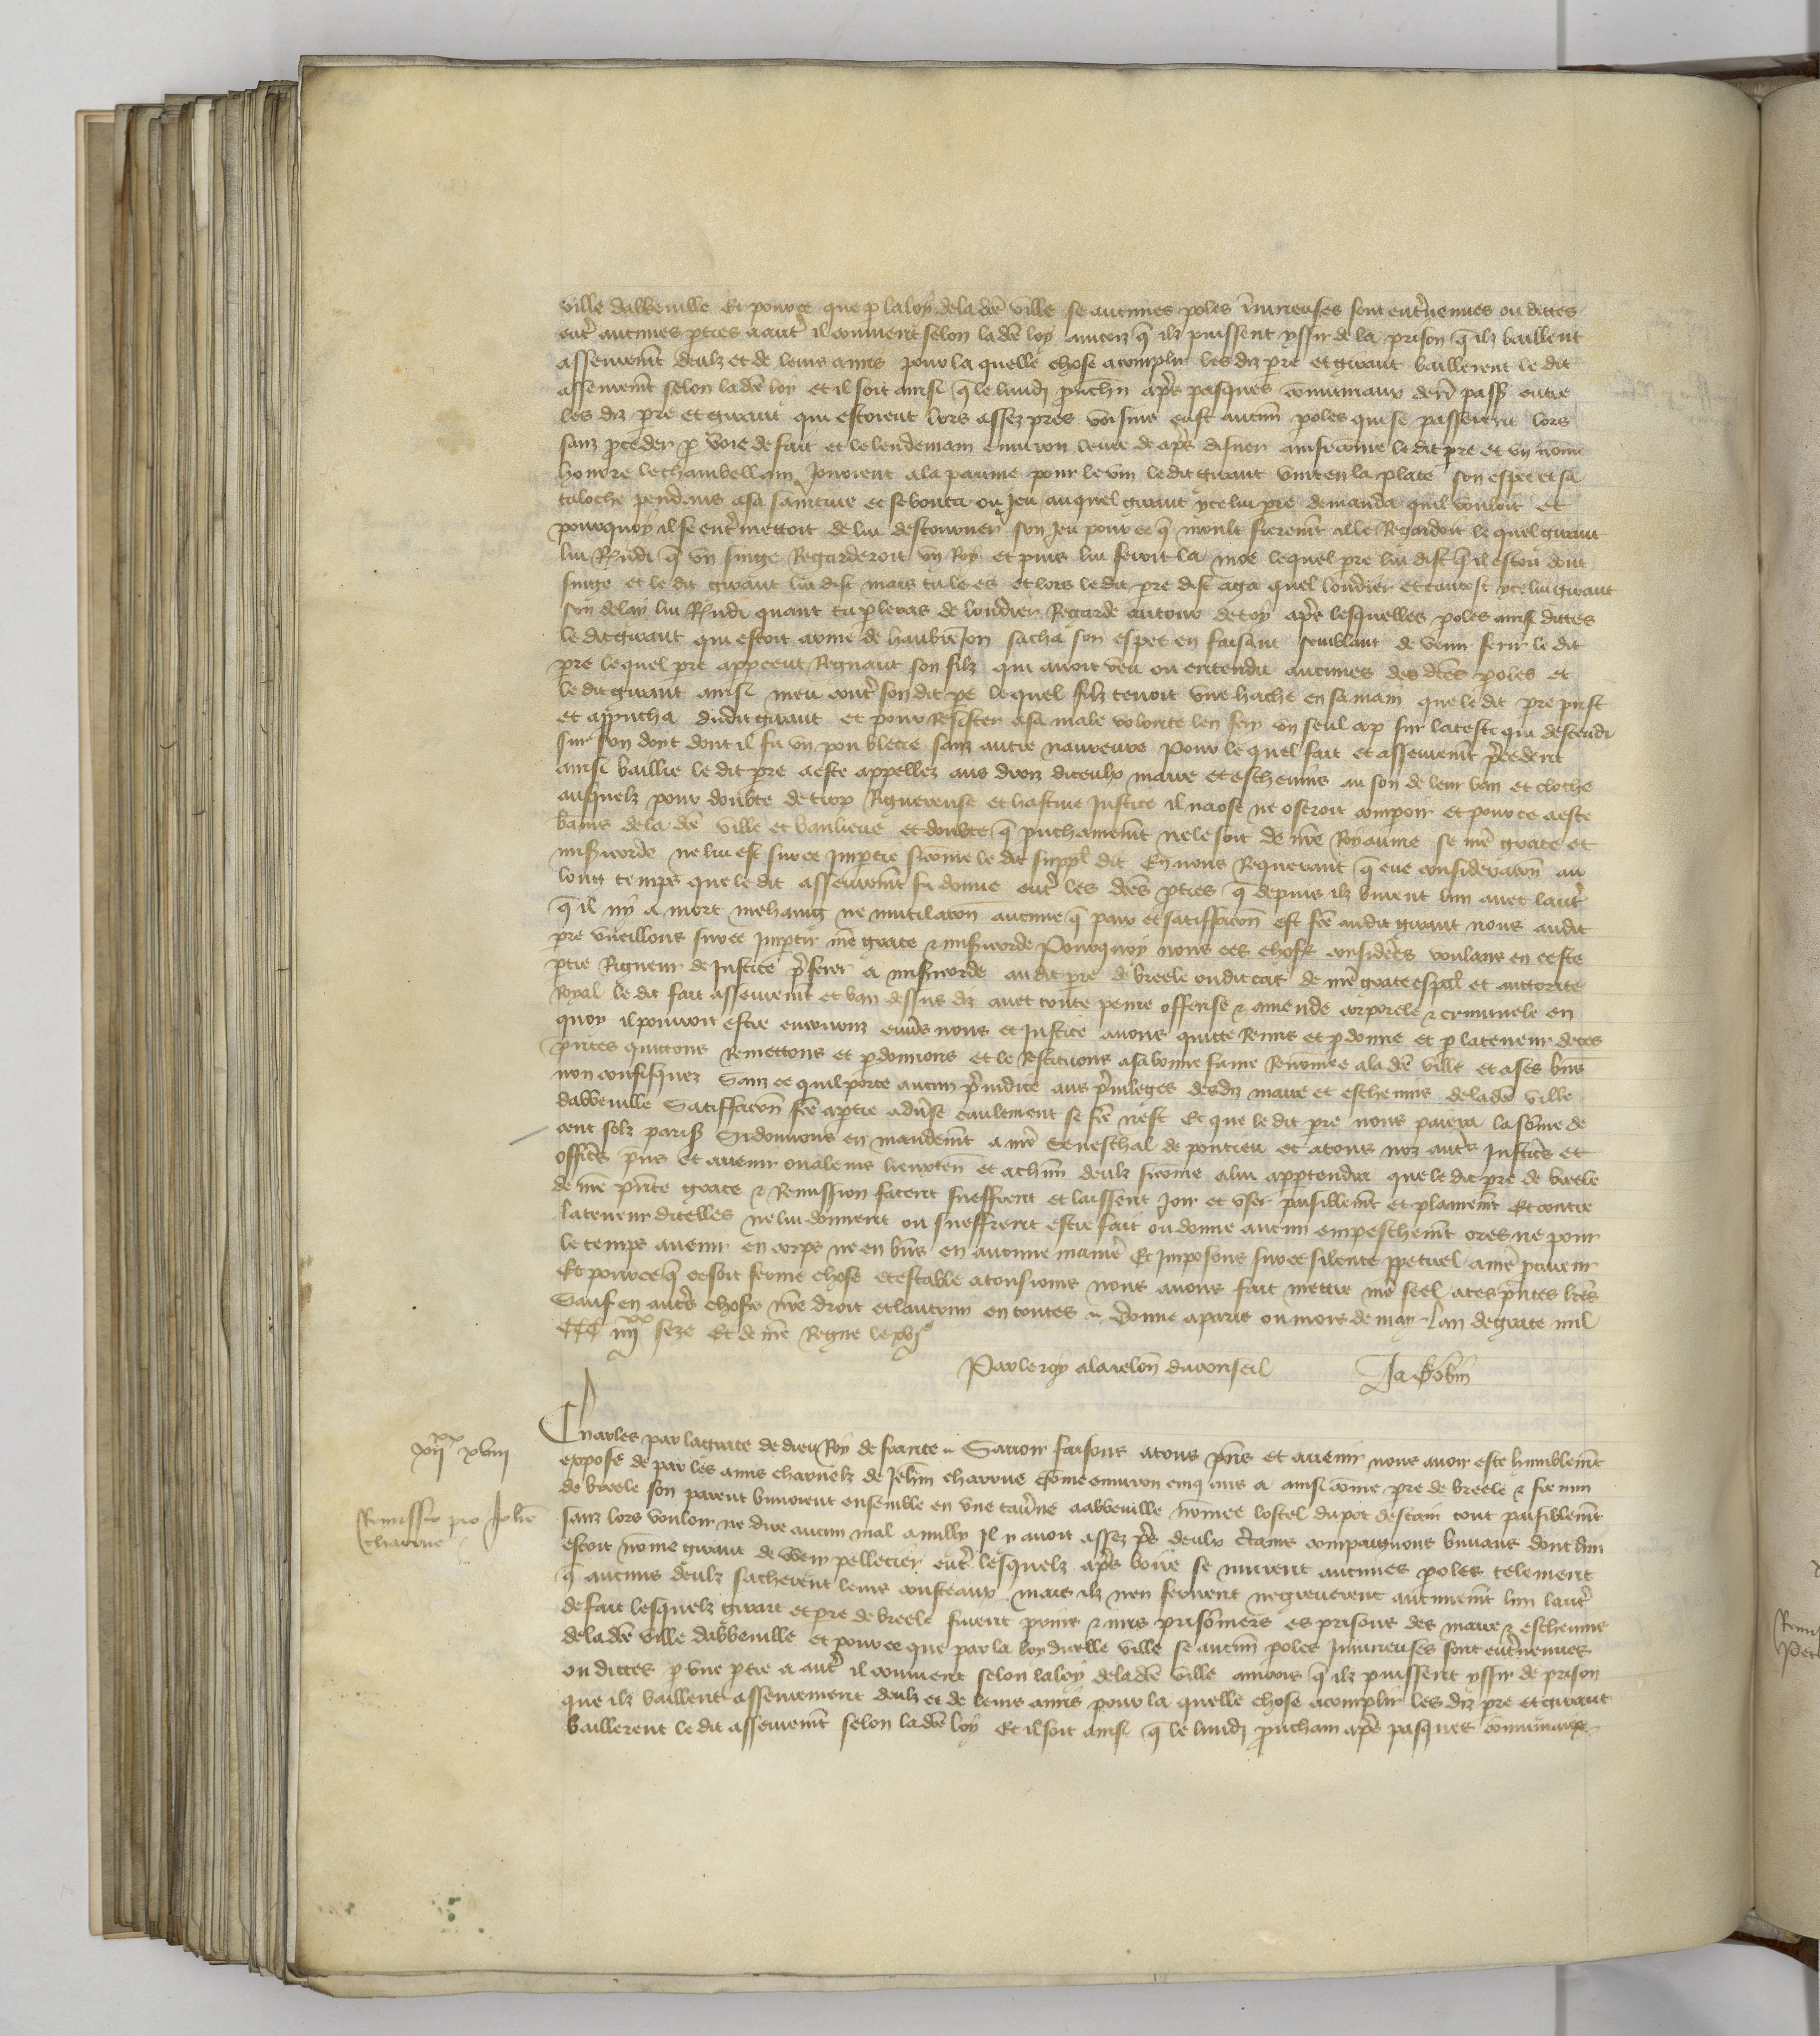 ville dabbeville Et pource que p la loy de la dce ville se aucunes poles iniurieuses sont entrevenues ou dittes
entre aucunes pties a autre il convient selon la dce loy aincoiz q ilz puissent yssir de la prison q ilz baillent
asseuremt deulz et de leurs amis pour la quelle chose acomplir les diz pre et girart baillerent le dit
asseuremt selon la dce loy et il soit ainsi q le lundi prochn aprs pasques comuniaux derr pass entre
les diz pre et girart qui estoient lors assez pres voisins eust aucun poles qui se passerent lors
sanz pceder p voie de fait et le lendemain environ leure de aprs disner ainsi come le dit pre et un nome
honore le chambellain Jouoient a la paume pour le vin le dit girart vint en la place son espee et sa
taloche pendens a sa sainture et se bouta ou Jeu auquel girart ycelui pre demanda quil vouloit et
pourquoy il se entremettoit de lui destourner son Jeu pour ce q moult fieremt alle Regardoit le quel girart
lui Rndi q un singe Regarderoit un Roy et puis lui feroit la moe lequel pre lui dist q il estoit dont
singe et le dit girart lui dist mais tu le es et lors le dit pre dist aga quel loudier et tantost ycelui girart
son delay lui Rndi quant tu pleras de loudier Regarde entour de toy aprs lesquelles poles ainsi dittes
le dit girart qui estoit arme de haubrejon sacha son espee en faisant semblant de venir ferir le dit
pre lequel pre appceut Regnaut son filz qui avoit veu ou entendu aucunes des dces poles et
le dit girart ainsi meu contre son dit pe lequel filz tenoit une hache en sa main que le dit pre prist
et aprucha dudit girart et pour Resister a sa male volonte len feri un seul cop sur la teste qui descendi
sur son doyt dont il fu un pou blecie sanz autre navreure Pour le quel fait et asseuremt precedent
ainsi baillie le dit pre a este appellez aus droiz diceulx maire et eschevins au son de leur ban et cloche
ausquelz pour doubte de trop Rigoureuse et hastive Justice il naose ne oseroit comparoir et pource a este
banis de la dce ville et banlieue et doubte q prochainemt ne le soit de nre Royaume se nre grace et
misicorde ne lui est sur ce Impartie si come le dit suppl dit En nous Requerant q eue consideracon au
long temps que le dit asseuremt fu donne entre les dces pties q depuis ilz burent lun avec lautre
q il ny a mort mehaing ne mutilacon aucune q paix et satiffacon est fce audit girart nous audit
pre vueillons sur ce Impartir nre grace & misicorde Pourquoy nous ces choses considerees voulans en ceste
ptie Rigueur de Justice preferer a misicorde au dit pre de breele ou dit cas de nre grace espal et auctorite
Royal le dit fait asseuremt et ban dessus diz avec toute peine offense & amende corporele & criminele en
quoy il pourroit estre encouruz envs nous et Justice avons quitte Remis et pdonne et p la teneur de ces
prntes quittons Remettons et pdonnons et le Restituons a sa bonne fame Renomee a la dce ville et a ses bns
non confisquez Sanz ce quil porte aucun preiudice aus privileges desdiz maire et eschevins de la dce ville
dabbeville Satiffacon fce a ptie advse civilement se fce nest Et que le dit pre nous paiera la some de
cent solz paris Si donnons en mandemt a nre Seneschal de pontieu et a tous noz autrs Justicrs et
officrs prns et avenir ou a leurs lieuxten et a chun deulz si come a lui appartendra que le dit pre de breele
de nre prnte grace & Remission facent sueffrent et laissent Joir et user paisiblemt et plainemt Et contre
la teneur dicelles ne lui donnent ou sueffrent estre fait ou donne aucun empeschemt ores ne pour
le temps avenir en corps ne en bns en aucune maniere Et Imposons sur ce silence ppetuel a nre pcureur
Et pource q ce soit ferme chose et estable a tousiours nous avons fait mettre nre seel a ces prntes lres
Sauf en autrs choses nre droit et lautruy en toutes Donne a paris ou mois de may Lan de grace mil
CCC iiii xx seze Et de nre Regne le xvi e
Par le roy a la relon du conseil Ja Bobin
Charles par la grace de dieu Roy de france Savoir faisons a tous prns et avenir nous avoir este humblemt
expose de par les amis charnelz de Jehan charrue Come environ cinq ans a ainsi come pre de breele & firmin
de breele son parent buvoient ensemble en une taverne a abbeville nomee lostel du pot destain tout paisiblemt
sanz lors vouloir ne dire aucun mal a nully Il y avoit assez prs deulx certains compaignons buvans dont lun
estoit nome girart de Wery pelletier entre lesquelz aprs boire se murent aucunes poles telement
q aucuns deulz sacherent leurs cousteaux mais ilz nen ferirent ne greverent aucunemt lun lautre
de fait lesquelz girart et pre de breele furent prins & mis prisoniers es prisons des maire & eschevins
de la dce ville dabbeville et pource que par la loy dicelle ville se aucun poles Iniurieuses sont entrevenues
ou dittes p une ptie a autre il convient selon la loy de la dce ville aincois q ilz puissent yssir de prison
que ilz baillent asseurement deulz et de leurs amis pour la quelle chose acomplir les diz pre et girart
baillerent le dit asseuremt selon la dce loy Et il soit ainsi q le lundi prochain aprs pasques comuniaux
xii xx xviii
Remissio pro Johe
charrue